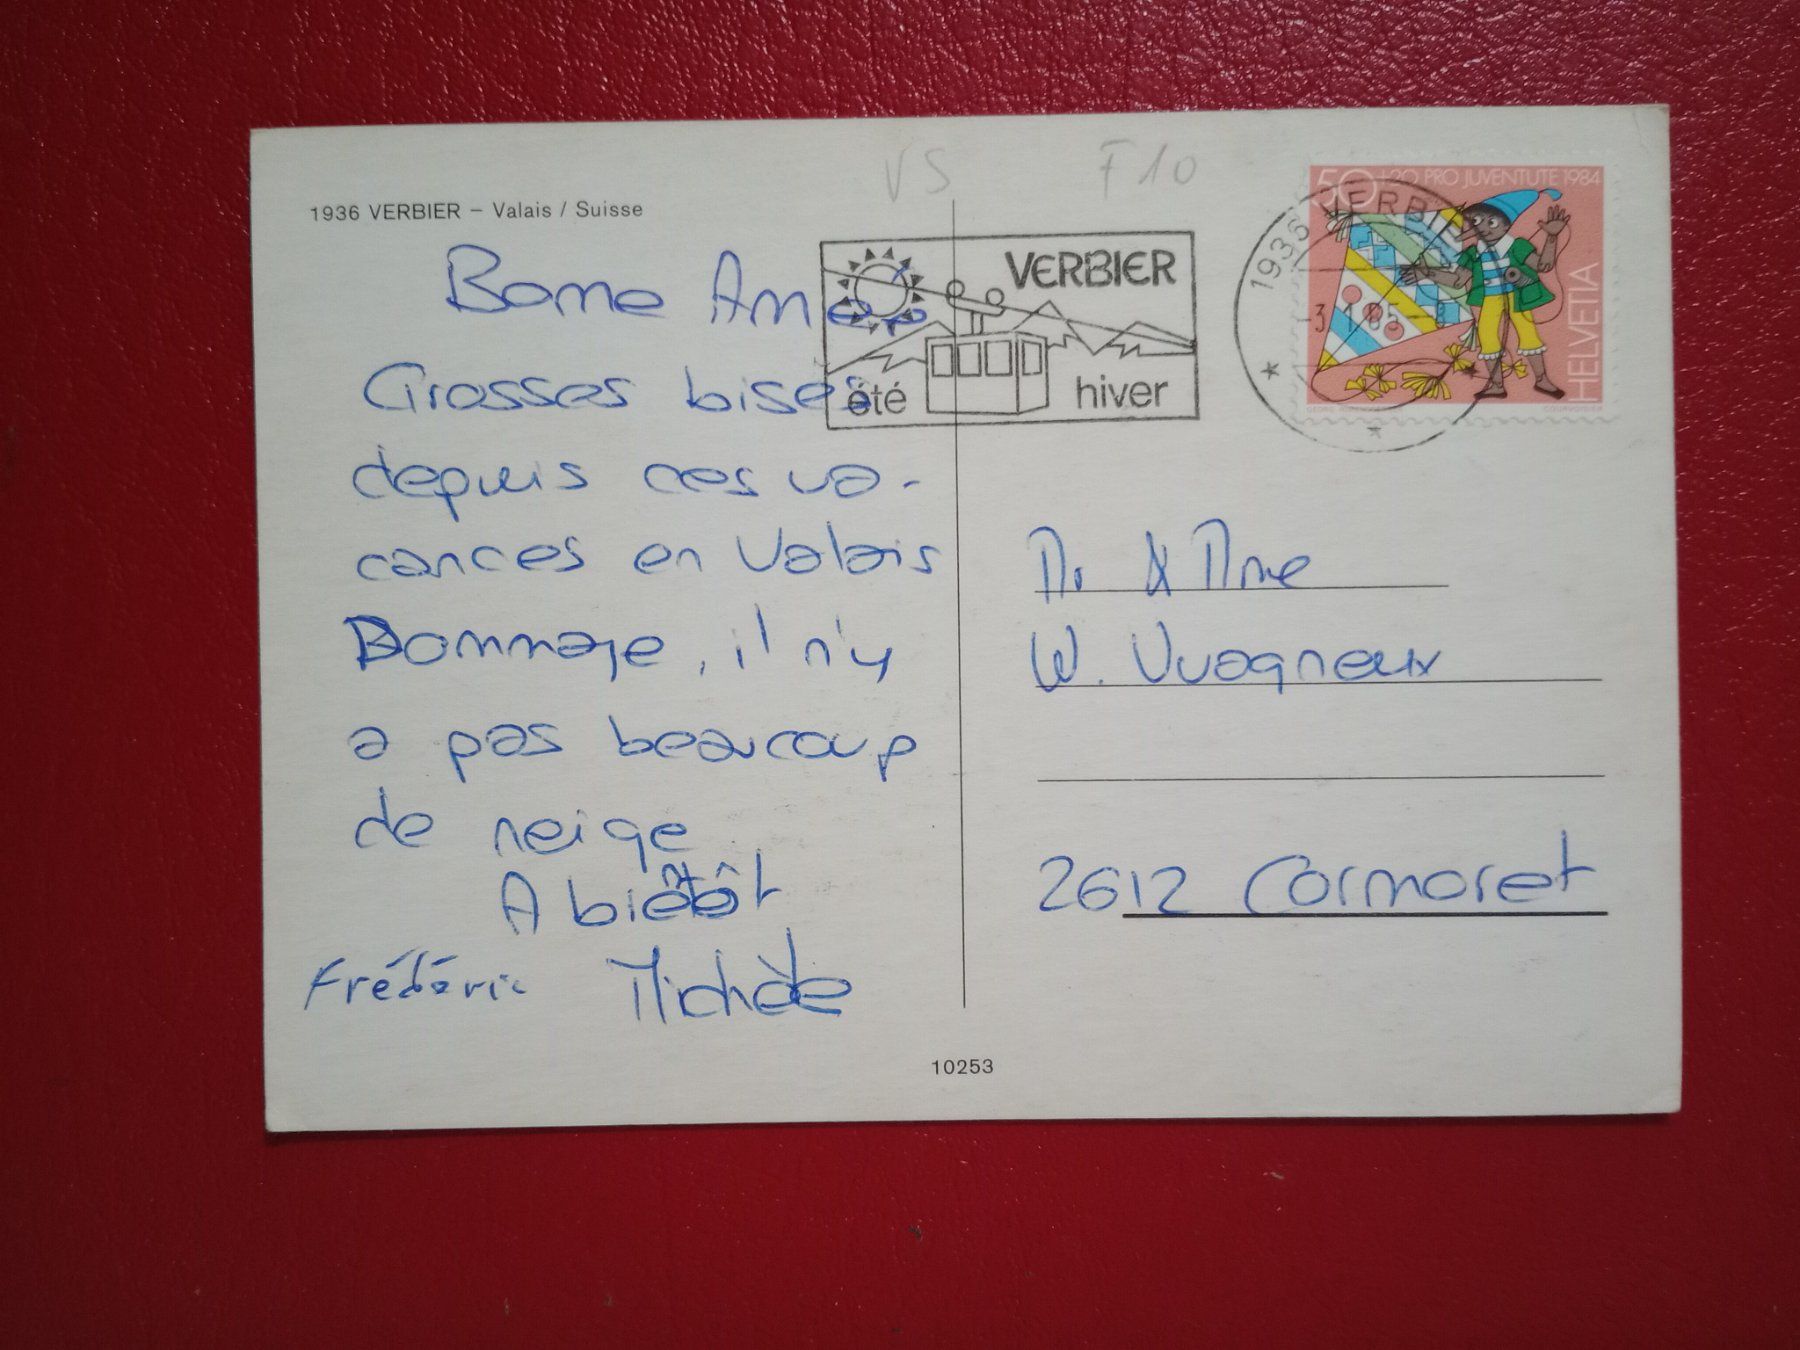 VS F10
1936 VERBIER – Valais / Suisse
Bonne Année
Grosses bises
depuis ces va-
cances en Valais
Dommage, il n'y
a pas beaucoup
de neige
A bientôt
Frédéric Michèle
VERBIER
été hiver
1936 VERBIER
-3.1.85-8
50+20 PRO JUVENTUTE 1984
HELVETIA
COURVOISIER
Mr & Mme
W. Vuagneux
2612 Cormoret
10253